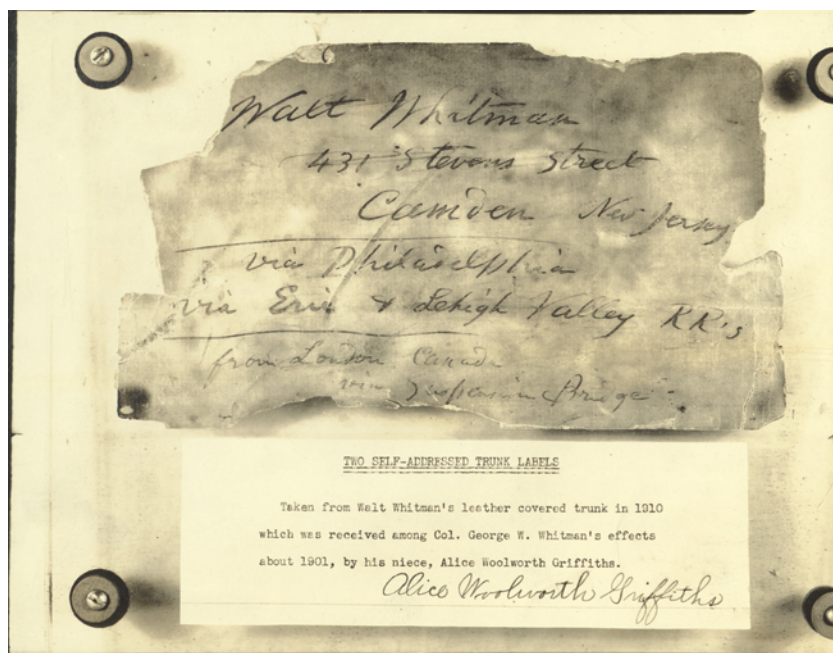 Walt Whitman
431 Stevens Street
Camden New Jersey
via Philadelphia
via Erie & Lehigh Valley RR's
from London Canada
via Suspension Bridge
TWO SELF-ADDRESSED TRUNK LABELS
Taken from Walt Whitman's leather covered trunk in 1910
which was received among Col. George W. Whitman's effects
about 1901, by his niece, Alice Woolworth Griffiths.
Alice Woolworth Griffiths